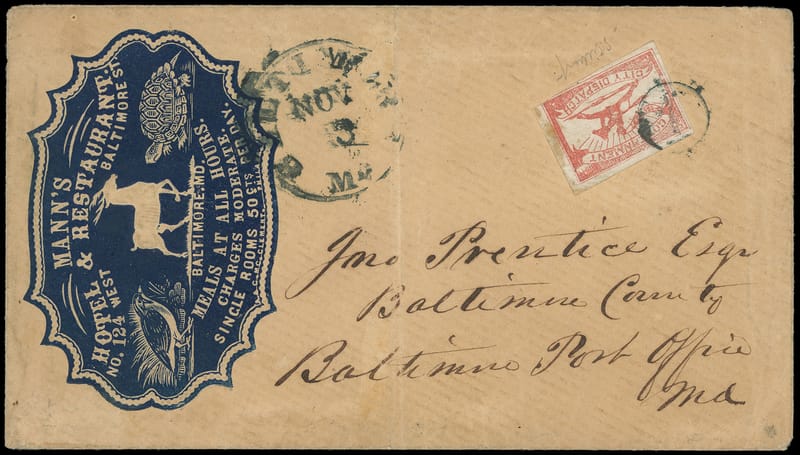 MANN'S
HOTEL & RESTAURANT.
NO. 124 WEST BALTIMORE ST
BALTIMORE, MD.
MEALS AT ALL HOURS.
CHARGES MODERATE.
SINGLE ROOMS 50 CTS PER DAY.
NOV
Md
CITY DISPATCH
GOVERNMENT
Jno Prentice Esqr
Baltimore County
Baltimore Post Office
Md